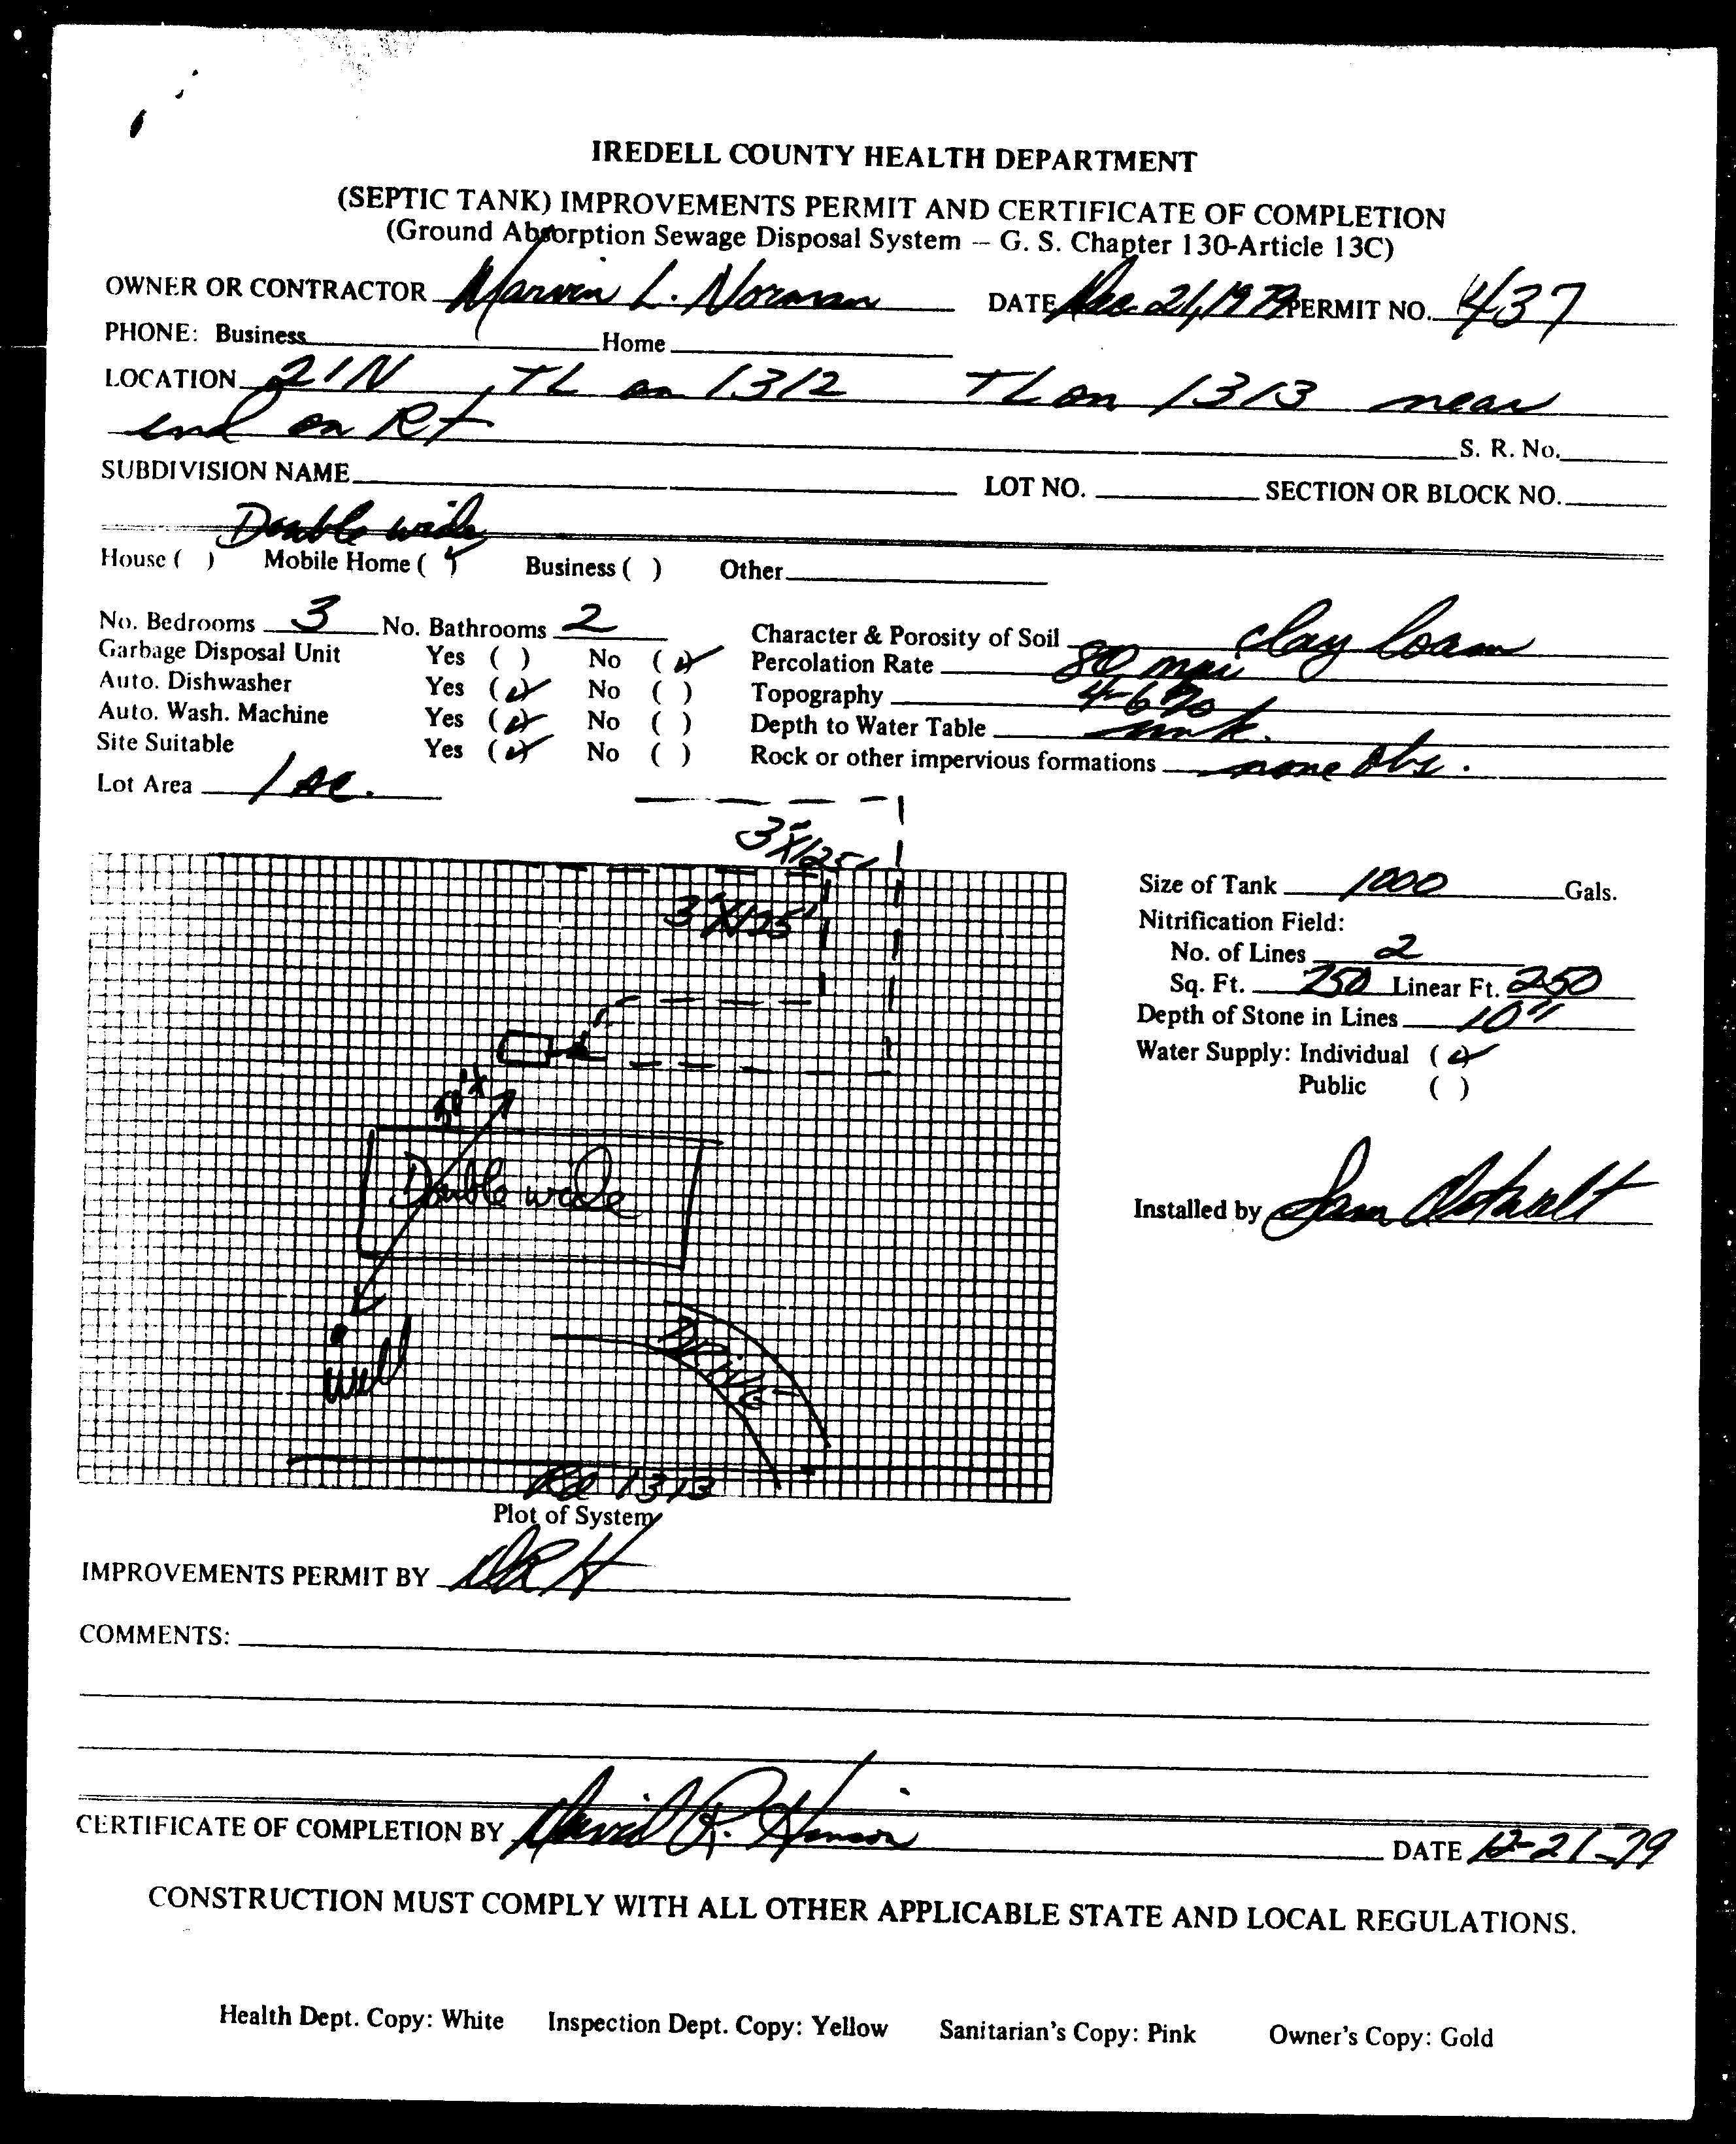 IREDELL COUNTY HEALTH DEPARTMENT
(SEPTIC TANK) IMPROVEMENTS PERMIT AND CERTIFICATE OF COMPLETION
(Ground Absorption Sewage Disposal System — G. S. Chapter 130-Article 13C)
OWNER OR CONTRACTOR Marvin L. Norman DATE Dec 21, 1979 PERMIT NO. 437
PHONE: Business Home
LOCATION 21N, TL on 1312 TL on 1313 near
end on Rt
S. R. No.
SUBDIVISION NAME LOT NO. SECTION OR BLOCK NO.
Double wide
House ( ) Mobile Home (✓) Business ( ) Other
No. Bedrooms 3 No. Bathrooms 2 Character & Porosity of Soil clay loam
Garbage Disposal Unit Yes ( ) No (✓) Percolation Rate 80 mpi
Auto. Dishwasher Yes (✓) No ( ) Topography 4-6%
Auto. Wash. Machine Yes (✓) No ( ) Depth to Water Table unk.
Site Suitable Yes (✓) No ( ) Rock or other impervious formations none obs.
Lot Area 1 ac.
3'x125'
3'x125'
Size of Tank 1000 Gals.
Nitrification Field:
No. of Lines 2
Sq. Ft. 750 Linear Ft. 250
Depth of Stone in Lines 10"
Water Supply: Individual (✓)
Public ( )
Double wide
Installed by Sam
well
Drive
Rd 1313
Plot of System
IMPROVEMENTS PERMIT BY DRH
COMMENTS:
CERTIFICATE OF COMPLETION BY David R. Hinson DATE 12-21-79
CONSTRUCTION MUST COMPLY WITH ALL OTHER APPLICABLE STATE AND LOCAL REGULATIONS.
Health Dept. Copy: White Inspection Dept. Copy: Yellow Sanitarian's Copy: Pink Owner's Copy: Gold